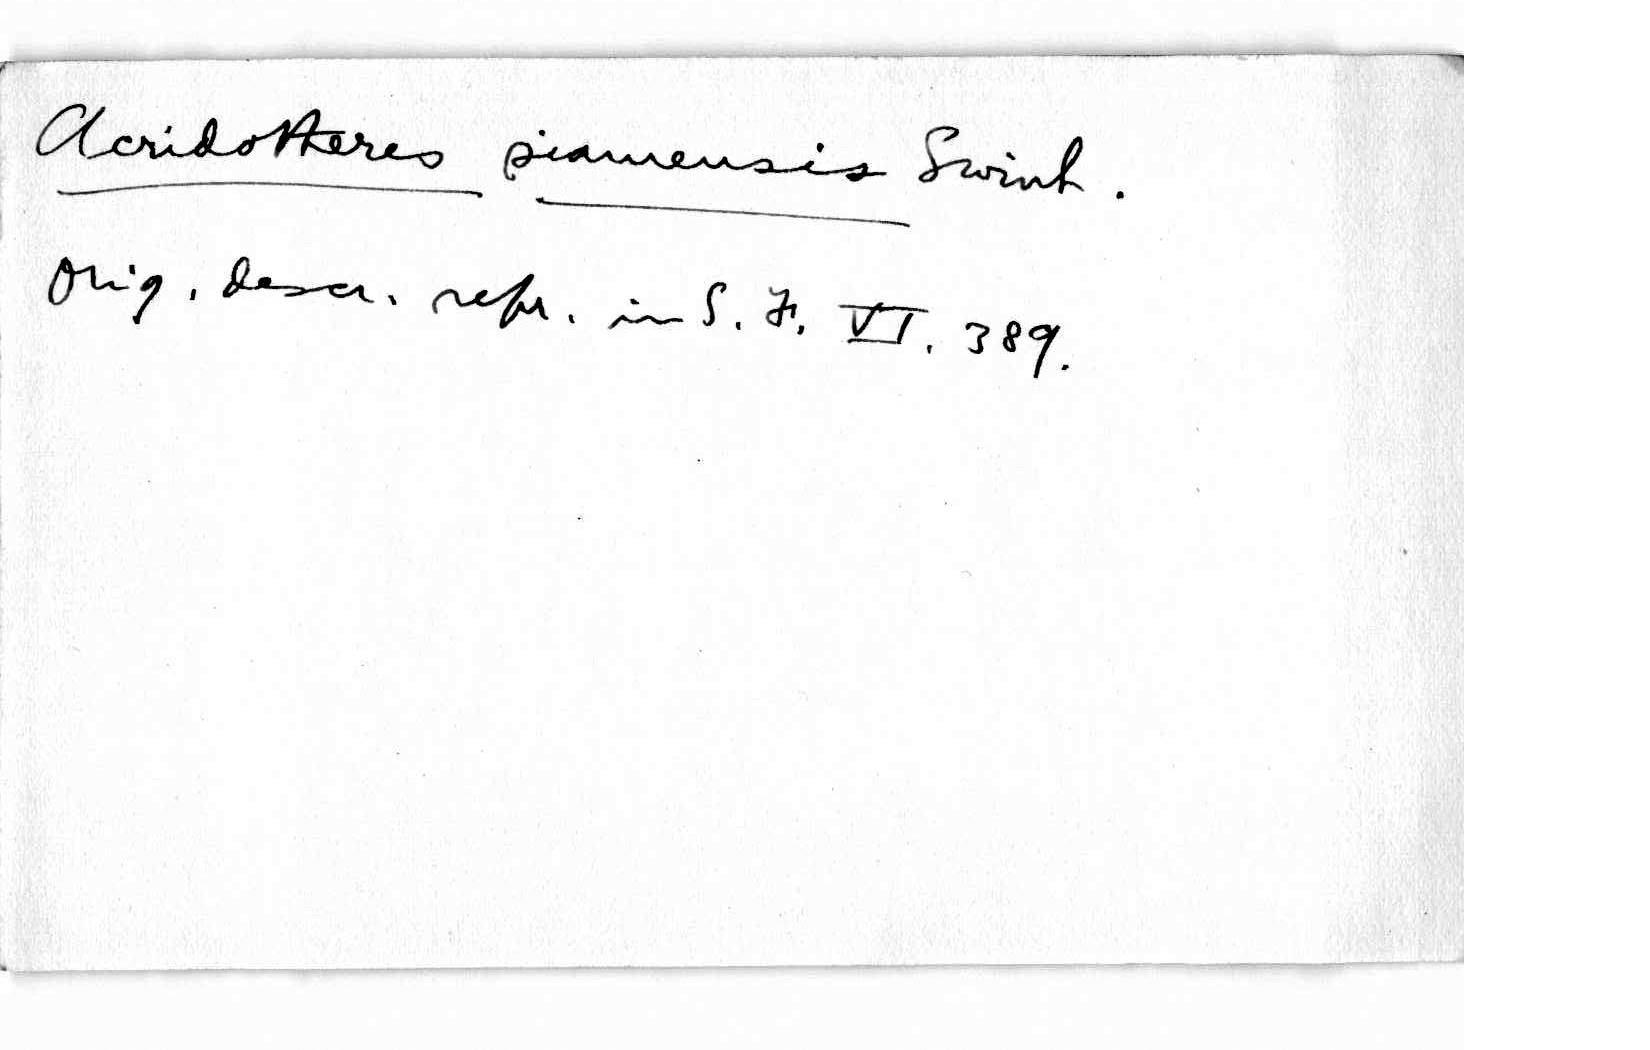 Acridotheres siamensis Swinh.
Orig. descr. repr. in S. F. VI. 389.